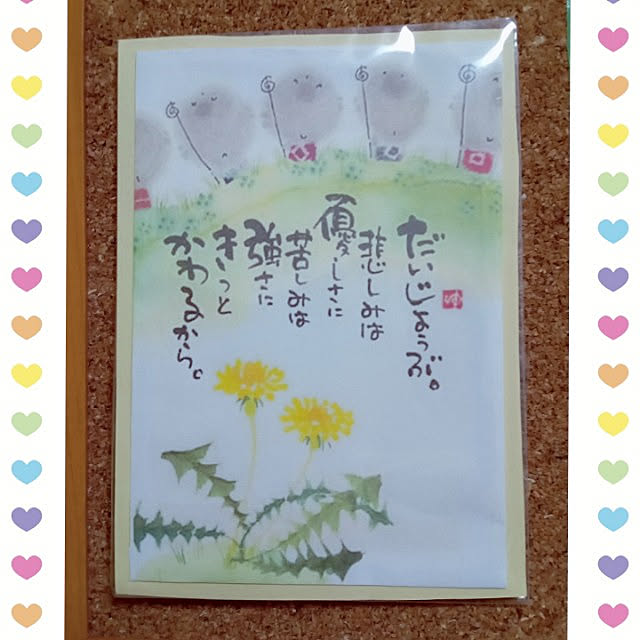 だいじょうぶ。
悲しみは
優しさに
苦しみは
強さに
きっと
かわるから。